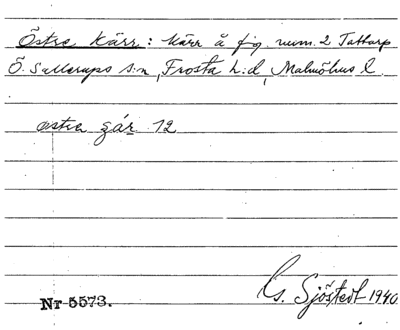 Östra Kärr: Kärr å fig. num. 2 Tattarp
Ö. Sallerups s:n, Frosta h:d, Malmöhus l.
östra çár 12
Nr 5573.
G. Sjöstedt 1940